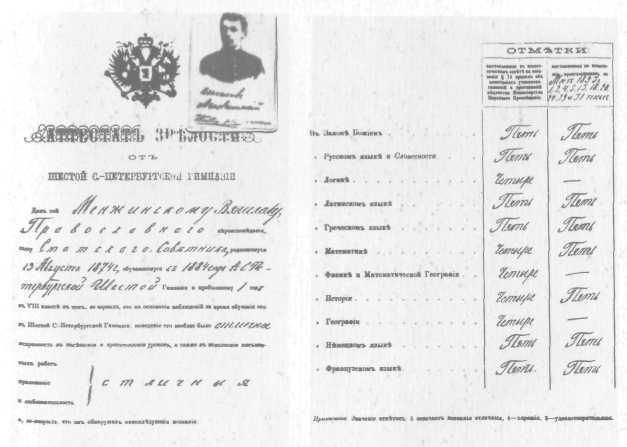 АТТЕСТАТЪ ЗРѢЛОСТИ
ОТЪ
ШЕСТОЙ С.-ПЕТЕРБУРГСКОЙ ГИМНАЗІИ
Данъ сей Менжинскому Вячеславу,
Православного вѣроисповѣданія,
сыну Статского Совѣтника, родившемуся
19 Августа 1874 г., обучавшемуся съ 1884 года въ С.Пе-
тербургской Шестой Гимназіи и пробывшему 1 годъ
въ VIII классѣ въ томъ, во первыхъ, что на основаніи наблюденій за время обученія его
въ Шестой С.-Петербургской Гимназіи, поведеніе его вообще было отличное
исправность въ посѣщеніи и приготовленіи уроковъ, а также въ исполненіи письмен-
ныхъ работъ
прилежаніе
и любознательность
отличныя
и, во-вторыхъ, что онъ обнаружилъ нижеслѣдующія познанія:
ОТМѢТКИ:
Въ Законѣ Божіемъ Пять Пять
» Русскомъ языкѣ и Словесности Пять Пять
» Логикѣ Четыре —
» Латинскомъ языкѣ Пять Пять
» Греческомъ языкѣ Пять Пять
» Математикѣ Четыре Пять
» Физикѣ и Математической Географіи Четыре —
» Исторіи Четыре Пять
» Географіи Четыре —
» Нѣмецкомъ языкѣ Пять Пять
» Французскомъ языкѣ Пять Пять
Примѣчаніе. Значеніе отмѣтокъ: 5 означаетъ познанія отличныя, 4—хорошія, 3—удовлетворительныя.